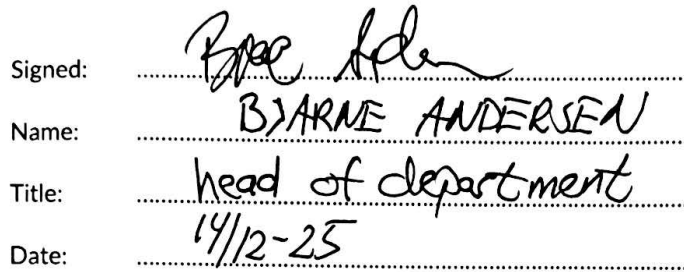 Signed:
Name: BJARNE ANDERSEN
Title: head of department
Date: 14/12-25